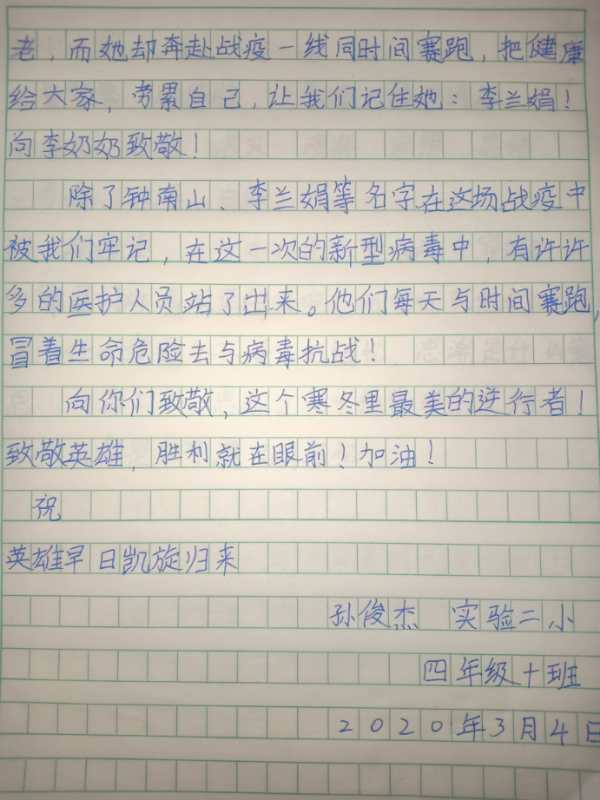 老，而她却奔赴战疫一线同时间赛跑，把健康
给大家，劳累自己，让我们记住她：李兰娟！
向李奶奶致敬！
除了钟南山、李兰娟等名字在这场战疫中
被我们牢记，在这一次的新型病毒中，有许许
多的医护人员站了出来。他们每天与时间赛跑，
冒着生命危险去与病毒抗战！
向你们致敬，这个寒冬里最美的逆行者！
致敬英雄，胜利就在眼前！加油！
祝
英雄早日凯旋归来
孙俊杰 实验二小
四年级十班
2020年3月4日